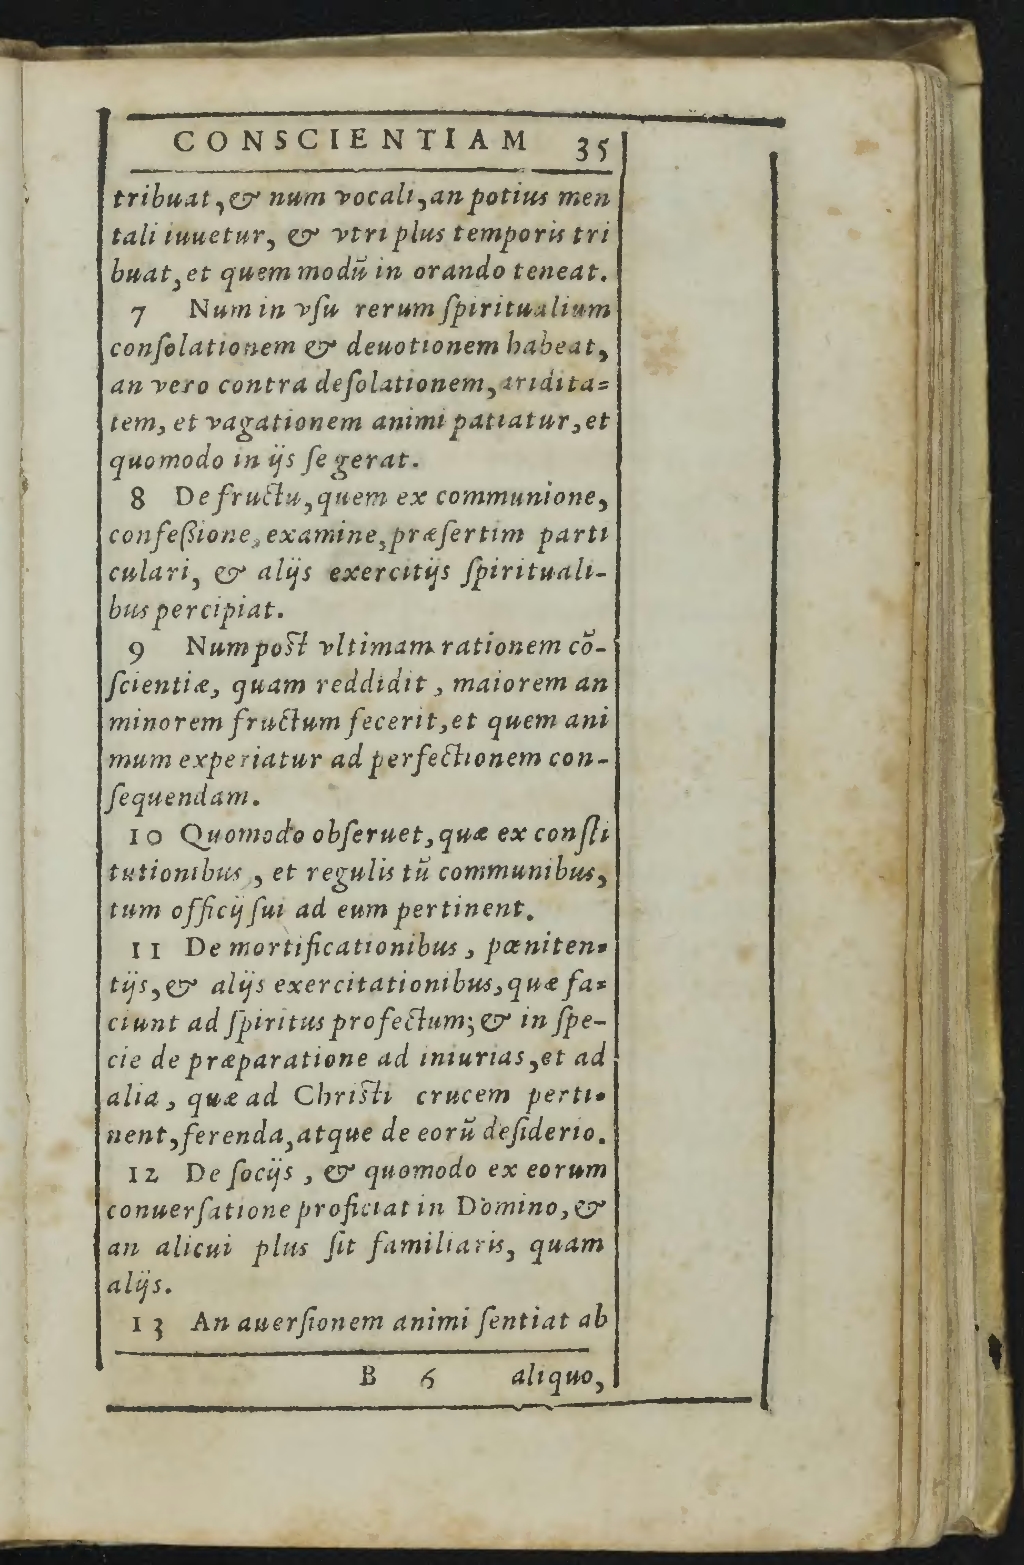 CONSCIENTIAM 35
tribuat, & num vocali, an potius men
tali iuuetur, & vtri plus temporis tri
buat, et quem modū in orando teneat.
7 Num in vſu rerum ſpiritualium
conſolationem & deuotionem habeat,
an vero contra deſolationem, aridita=
tem, et vagationem animi patiatur, et
quomodo in ijs ſe gerat.
8 De fructu, quem ex communione,
confeſsione, examine, præſertim parti
culari, & alijs exercitijs ſpirituali-
bus percipiat.
9 Num poſt vltimam rationem cō-
ſcientiæ, quam reddidit, maiorem an
minorem fructum fecerit, et quem ani
mum experiatur ad perfectionem con-
ſequendam.
10 Quomodo obſeruet, quæ ex conſti
tutionibus, et regulis tū communibus,
tum officij ſui ad eum pertinent.
11 De mortificationibus, pœniten=
tijs, & alijs exercitationibus, quæ fa=
ciunt ad ſpiritus profectum; & in ſpe-
cie de præparatione ad iniurias, et ad
alia, quæ ad Chriſti crucem perti=
nent, ferenda, atque de eorū deſiderio.
12 De ſocijs, & quomodo ex eorum
conuerſatione proficiat in Domino, &
an alicui plus ſit familiaris, quam
alijs.
13 An auerſionem animi ſentiat ab
B 6 aliquo,